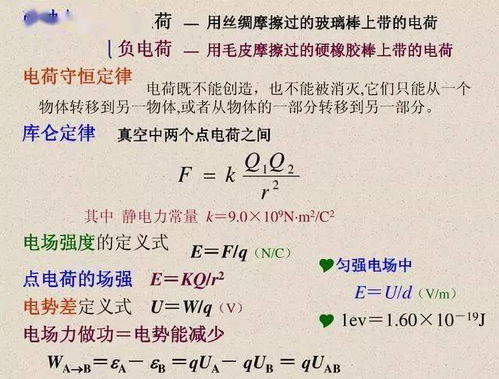 荷 — 用丝绸摩擦过的玻璃棒上带的电荷
负电荷 — 用毛皮摩擦过的硬橡胶棒上带的电荷
电荷守恒定律 电荷既不能创造，也不能被消灭,它们只能从一个
物体转移到另一物体,或者从物体的一部分转移到另一部分。
库仑定律 真空中两个点电荷之间
F = k Q₁Q₂ / r²
其中 静电力常量 k=9.0×10⁹N·m²/C²
电场强度的定义式 E=F/q (N/C)
点电荷的场强 E=KQ/r²
电势差定义式 U=W/q (V)
匀强电场中
E=U/d (V/m)
1ev=1.60×10⁻¹⁹J
电场力做功=电势能减少
W_A→B=ε_A−ε_B=qU_A−qU_B=qU_AB